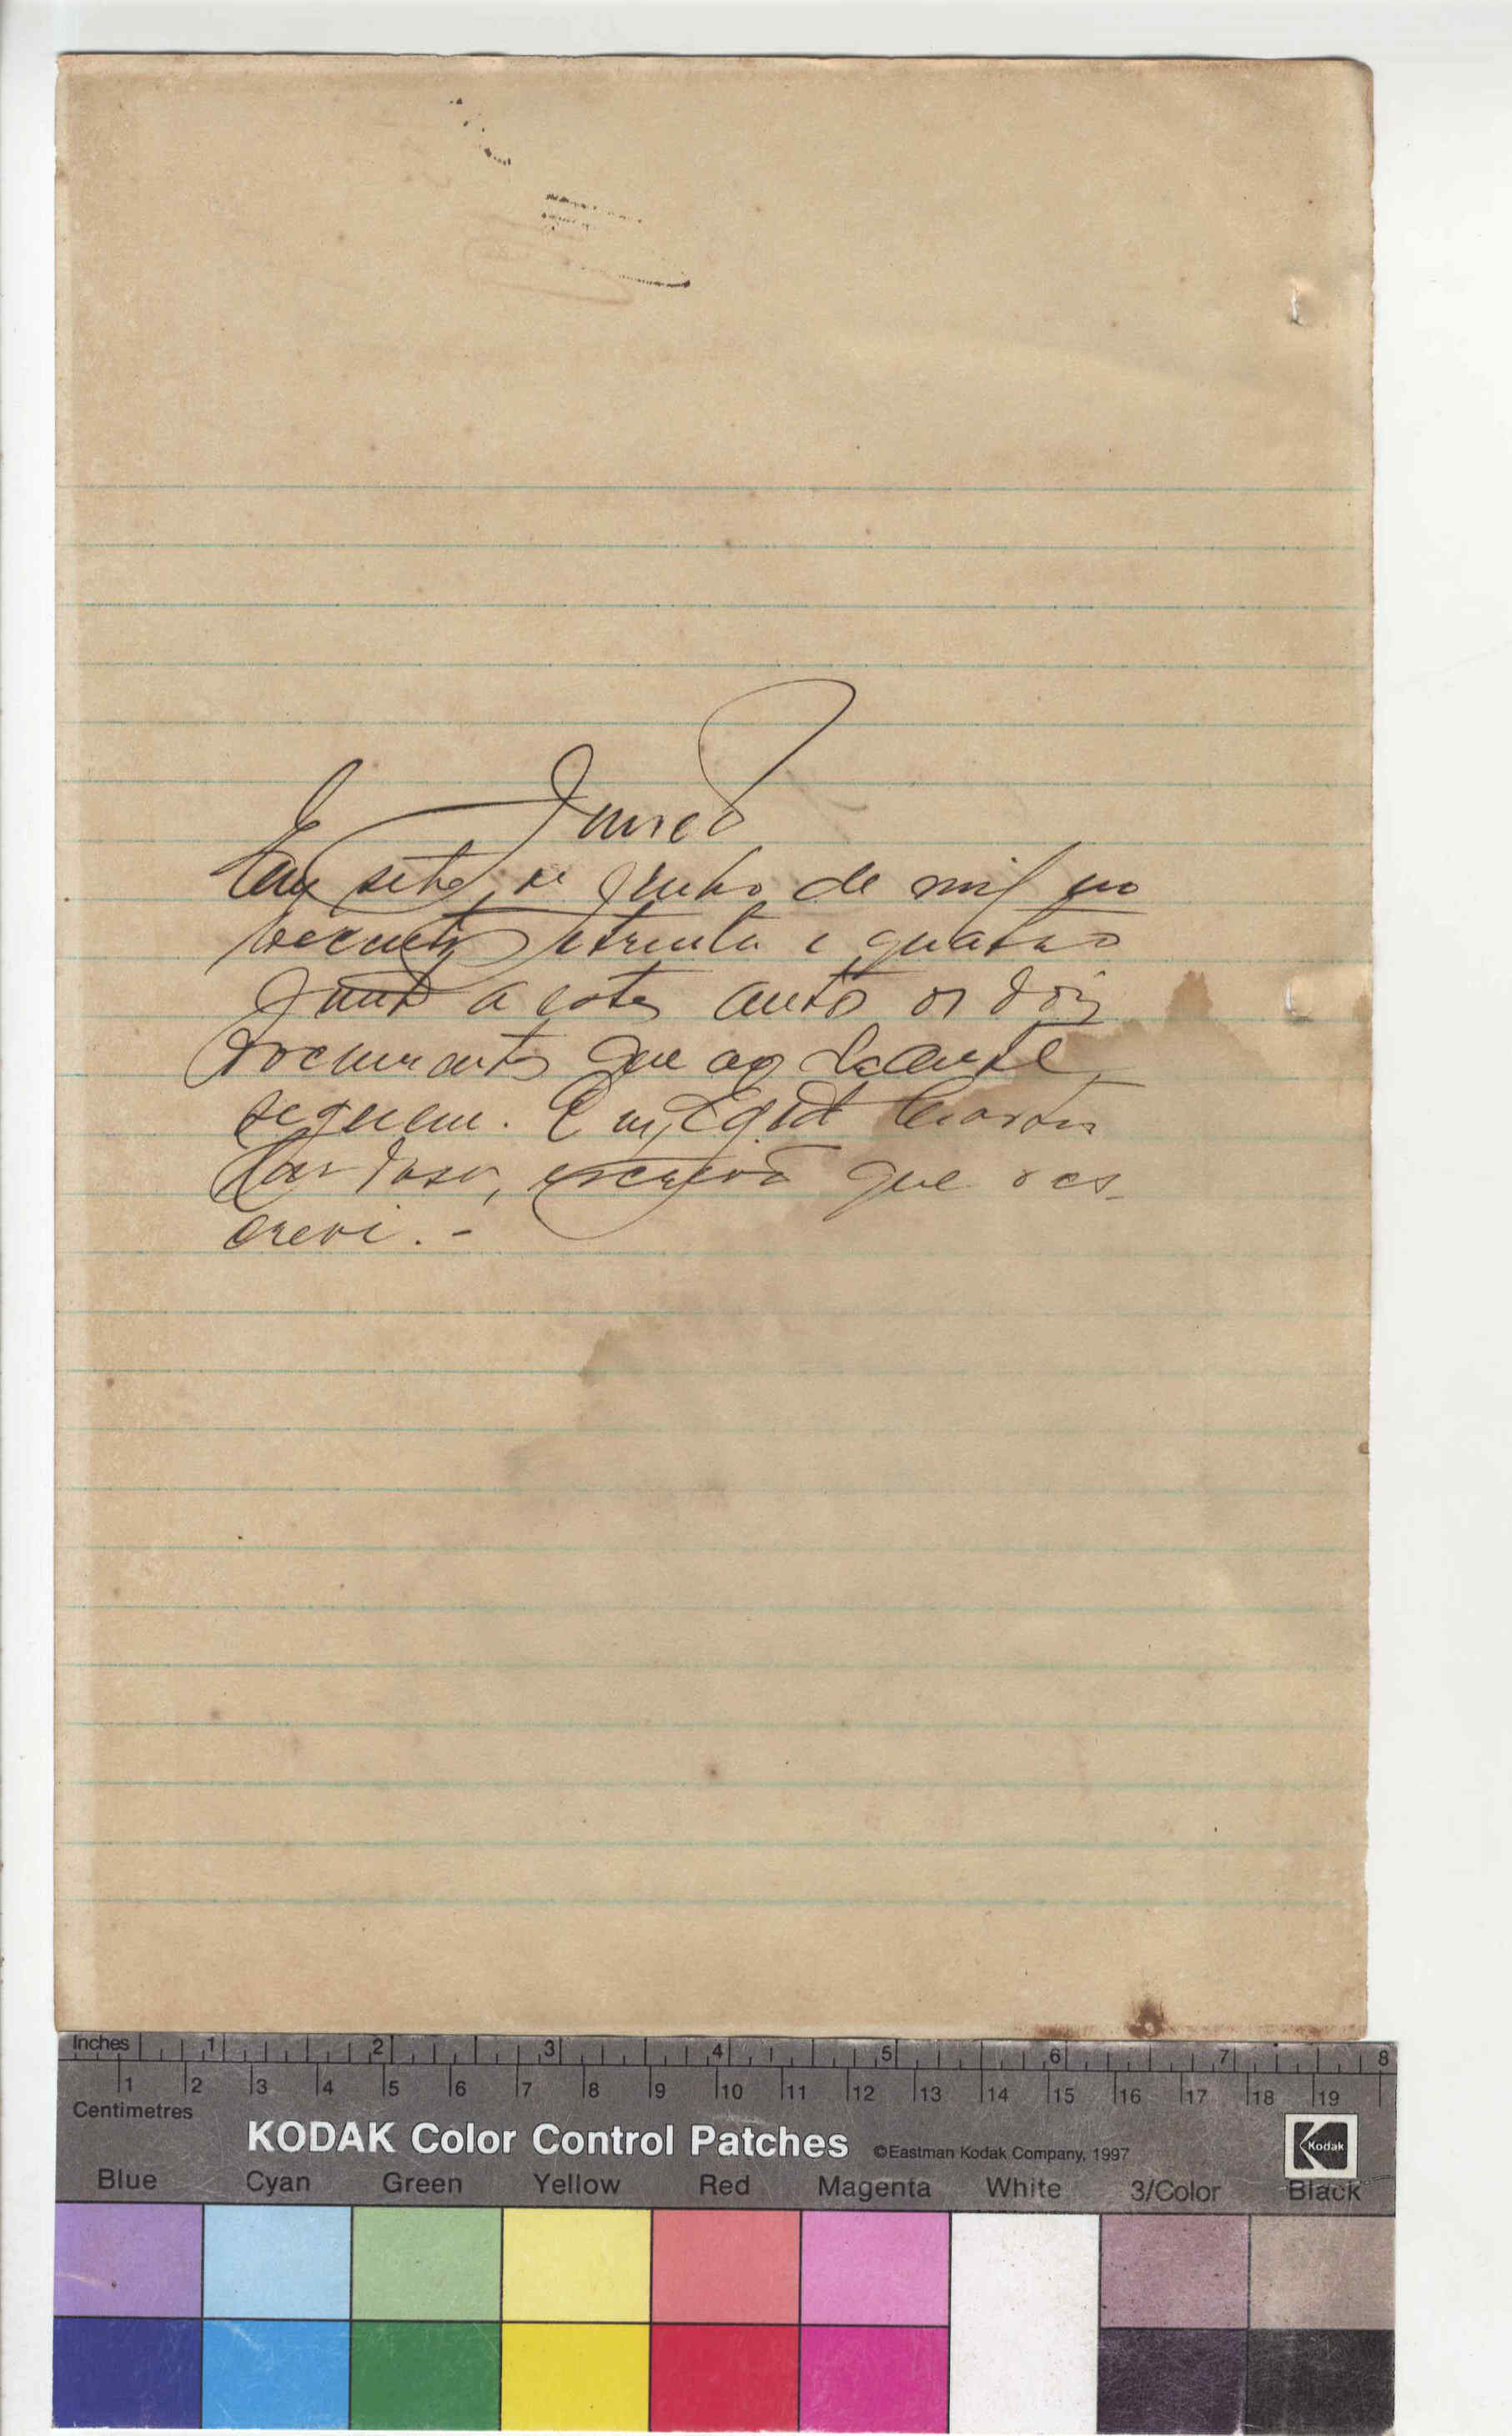 Juntada
Em sete de junho de mil no
vecentos e trinta e quatro
junto a estes autos os dois
documentos que ao deante
seguem. Eu, Egidio
Cardoso, escrivão que o es-
crevi. -
Inches 1 2 3 4 5 6 7 8
1 2 3 4 5 6 7 8 9 10 11 12 13 14 15 16 17 18 19
Centimetres
KODAK Color Control Patches ©Eastman Kodak Company, 1997 Kodak
Blue Cyan Green Yellow Red Magenta White 3/Color Black